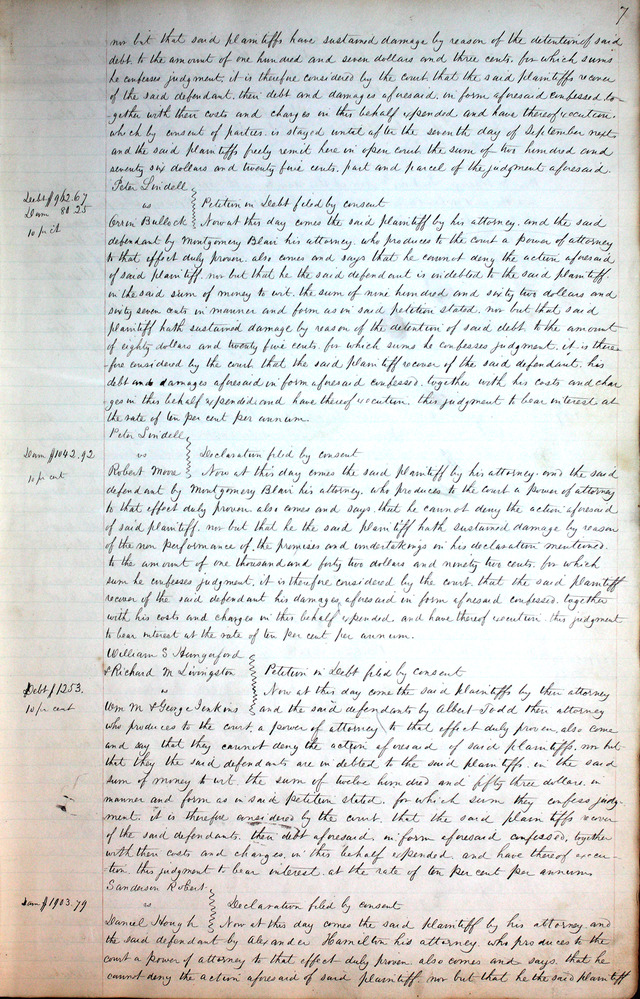 7
nor but that said plaintiffs have sustained damage by reason of the detention of said
debt. to the amount of one hundred and seven dollars and three cents. for which sums
he confesses judgment. it is therefore considered by the court. that the said plaintiffs recover
of the said defendant. their debt and damages aforesaid. in form aforesaid confessed. to-
gether with their costs and charges in this behalf expended and have thereof execution.
which by consent of parties. is stayed until after the seventh day of September next
and the said plaintiffs freely remit here in open court the sum of two hundred and
seventy six dollars and twenty five cents. part and parcel of the judgment aforesaid.
Peter Lindell
Debt $962.67
vs Petition in Debt filed by consent
Dam 80.25
Orrin Bullock Now at this day comes the said plaintiff by his attorney. and the said
10 pr ct
defendant by Montgomery Blair his attorney. who produces to the court a power of attorney
to that effect duly proven. also comes and says that he cannot deny the action aforesaid
of said plaintiff. nor but that he the said defendant is indebted to the said plaintiff
in the said sum of money to wit. the sum of nine hundred and sixty two dollars and
sixty seven cents in manner and form as in said petition stated. nor but that said
plaintiff hath sustained damage by reason of the detention of said debt. to the amount
of eighty dollars and twenty five cents. for which sums he confesses judgment. it is there-
fore considered by the court that the said plaintiff recover of the said defendant. his
debt and damages aforesaid in form aforesaid confessed. together with his costs and char
ges in this behalf expended. and have thereof execution. this judgment to bear interest at
the rate of ten per cent per annum.
Peter Lindell
Dam $1042.92
vs Declaration filed by consent
10 pr cent
Robert Moore Now at this day comes the said plaintiff by his attorney. and the said
defendant by Montgomery Blair his attorney. who produces to the court a power of attorney
to that effect duly proven also comes and says. that he cannot deny the action aforesaid
of said plaintiff. nor but that he the said plaintiff hath sustained damage by reason
of the non performance of. the premises and undertakings in his declaration mentioned.
to the amount of one thousand and forty two dollars and ninety two cents. for which
sum he confesses judgment. it is therefore considered by the court. that the said plaintiff
recover of the said defendant his damages, aforesaid in form aforesaid confessed. together
with his costs and charges in this behalf expended. and have thereof execution. this judgment
to bear interest at the rate of ten per cent per annum.
William S Hungerford
& Richard M Livingston Petition in Debt filed by consent
Debt $1253.
vs Now at this day come the said plaintiffs by their attorney
10 pr cent
Wm M & George Jenkins and the said defendants by Albert Todd their attorney
who produces to the court, a power of attorney to that effect duly proven, also come
and say that they cannot deny the action aforesaid of said plaintiffs, nor but
that they the said defendants are indebted to the said plaintiffs. in the said
sum of money to wit. the sum of twelve hundred and fifty three dollars. in
manner and form as in said Petition stated. for which sum they confess judg-
ment. it is therefore considered by the court, that the said plaintiffs recover
of the said defendants. their debt aforesaid. in form aforesaid confessed, together
with their costs and charges, in this behalf expended. and have thereof execu-
tion this judgment to bear interest. at the rate of ten per cent per annum
Sanderson Robert
Dam $1903.79
vs Declaration filed by consent
Daniel Hough Now at this day comes the said plaintiff by his attorney. and
the said defendant by Alexander Hamilton his attorney. who produces to the
court a power of attorney to that effect duly proven also comes and says. that he
cannot deny the action aforesaid of said plaintiff nor but that he the said plaintiff